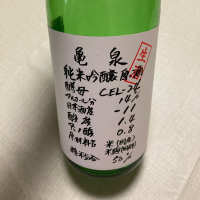 亀泉
生
純米吟醸原酒
酵母 CEL-24
アルコール分 14%
日本酒度 -11
酸度 1.4
アミノ酸 0.8
原材料名 米(国産)
米麹(国産米)
精米歩合 50%